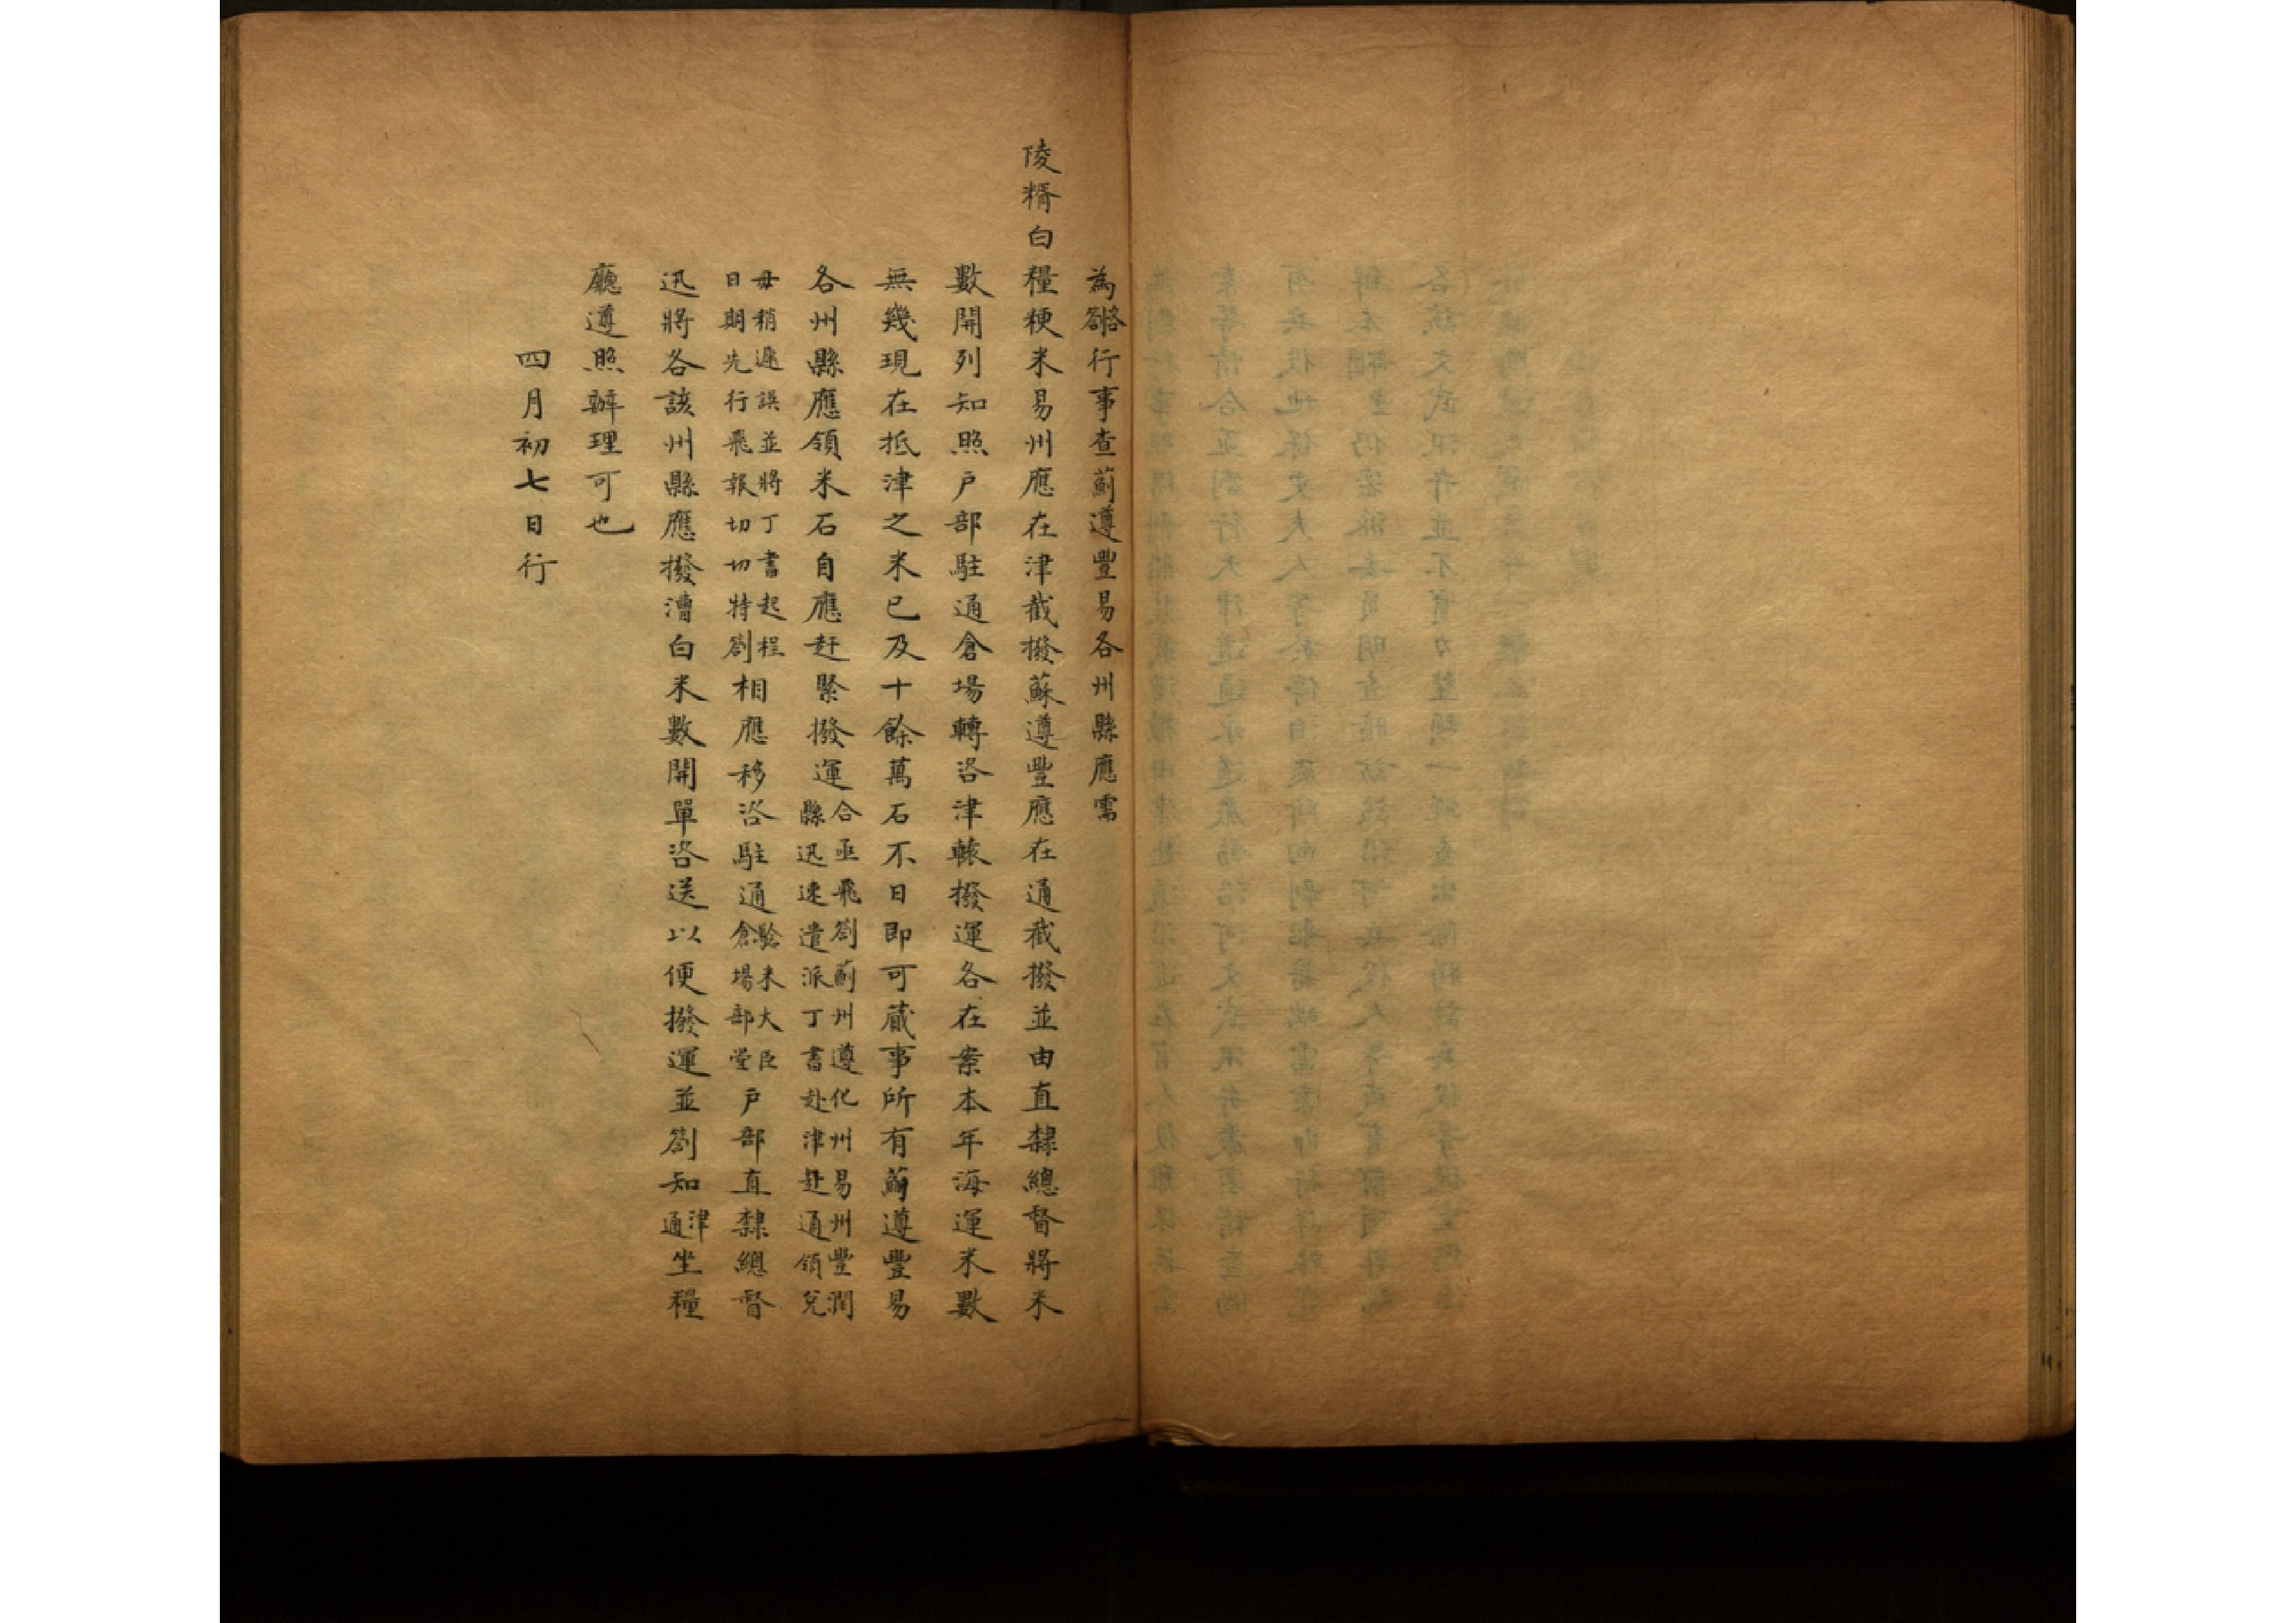 為咨劄行事查薊遵豐易各州縣應需
陵糈白糧粳米易州應在津截撥蘇遵豐應在通截撥並由直隸總督將米
數開列知照户部駐通倉場轉咨津轅撥運各在案本年海運米數
無幾現在抵津之米已及十餘萬石不日即可蕆事所有薊遵豐易
各州縣應領米石自應赶緊撥運合亟飛劄薊州遵化州易州豐潤縣迅速遣派丁書赴津赴通領兌
毋稍遲誤並將丁書起程日期先行飛報切切特劄相應移咨駐通驗米大臣倉場部堂户部直隸總督
迅將各該州縣應撥漕白米數開單咨送以便撥運並劄知津通坐糧
廳遵照辦理可也
四月初七日行